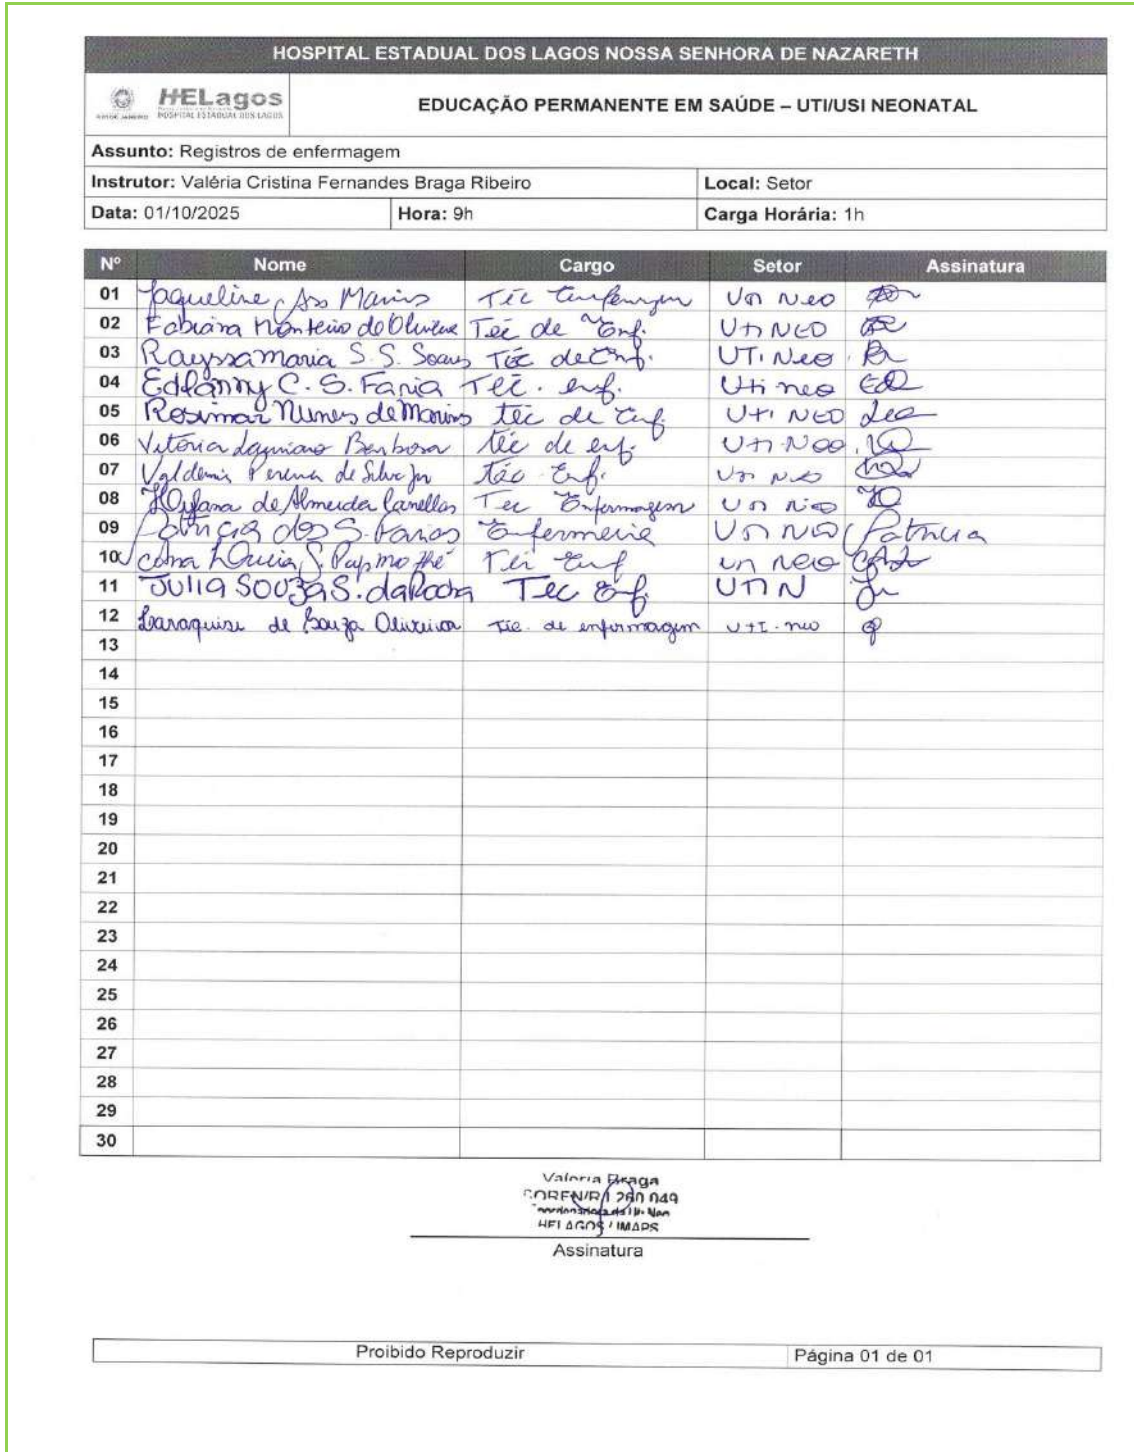 HOSPITAL ESTADUAL DOS LAGOS NOSSA SENHORA DE NAZARETH
HELagos
HOSPITAL ESTADUAL DOS LAGOS
EDUCAÇÃO PERMANENTE EM SAÚDE – UTI/USI NEONATAL
Assunto: Registros de enfermagem
Instrutor: Valéria Cristina Fernandes Braga Ribeiro Local: Setor
Data: 01/10/2025 Hora: 9h Carga Horária: 1h
Nº Nome Cargo Setor Assinatura
01 Jaqueline Marins Téc Enfermagem Uti Neo
02 Fabiana Monteiro de Oliveira Téc de Enf. Uti NEO
03 Rayssa Maria S. S. Soares Téc de Enf. UTI Neo
04 Edfanny C. S. Faria Téc. enf. Uti neo
05 Rosimar Nunes de Marins téc de Enf. Uti NEO
06 Vitória Barbosa téc de enf. Uti Neo
07 Valdemir Pereira da Silva Jr Téc Enf. Uti Neo
08 de Almeida Canellas Tec Enfermagem Uti Neo
09 Patricia dos S. Farias Enfermeira Uti Neo Patricia
10 Lucia S. Téc Enf Uti Neo
11 Julia Souza S. da Rocha Tec Enf. UTIN
12 de Souza Oliveira Tec. de enfermagem UTI-neo
13
14
15
16
17
18
19
20
21
22
23
24
25
26
27
28
29
30
Valeria Braga
COREN/RJ 260 049
HELAGOS / IMAPS
Assinatura
Proibido Reproduzir Página 01 de 01